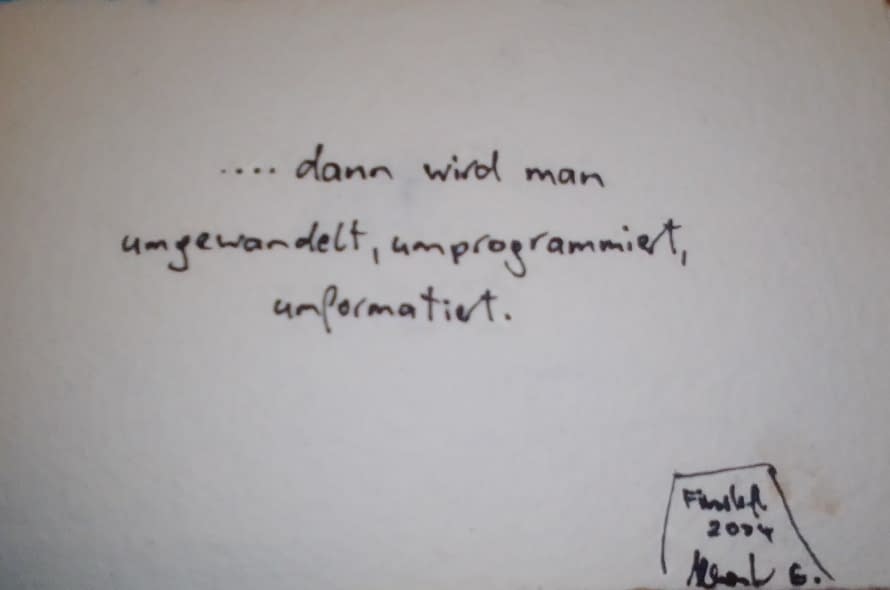 .... dann wird man
umgewandelt, umprogrammiert,
umformatiert.
2004
G.